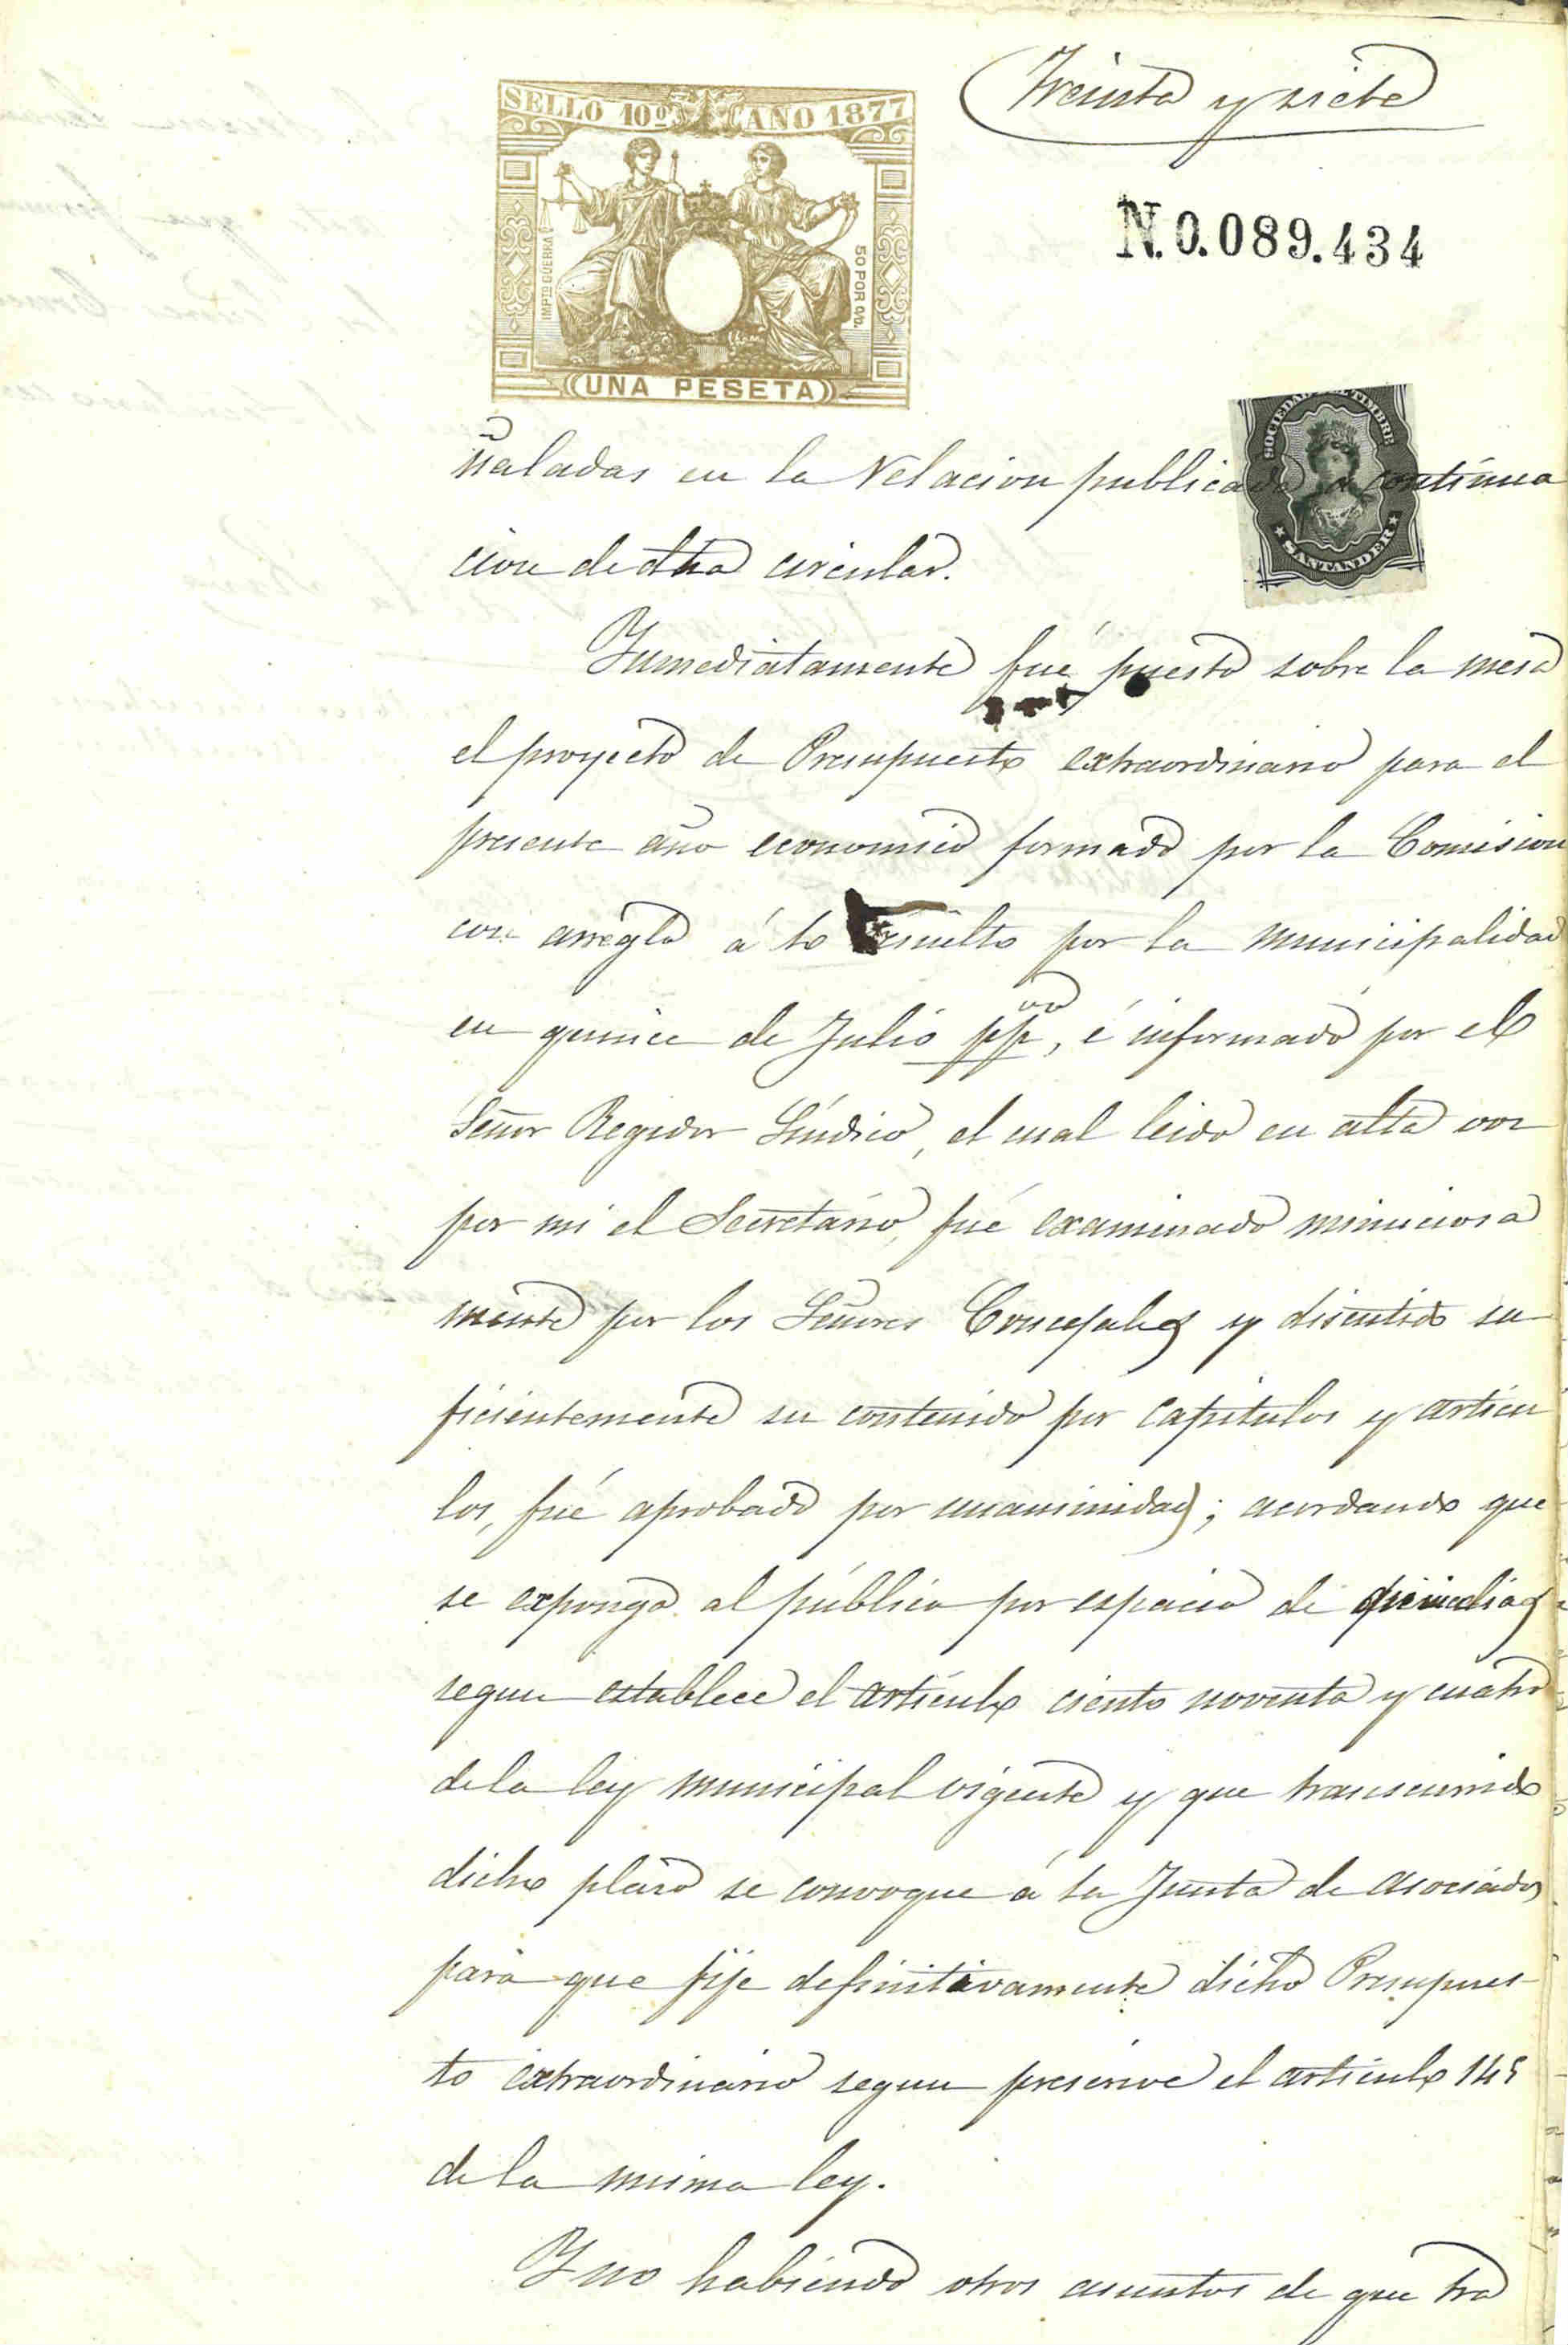 Treinta y siete
SELLO 10º AÑO 1877
IMPTO GUERRA
50 POR 0/0.
UNA PESETA
N.0.089.434
SOCIEDAD DEL TIMBRE
SANTANDER
ñaladas en la Relacion publicada a continua
cion de dha circular.
Inmediatamente fué puesto sobre la mesa
el proyecto de Presupuesto extraordinario para el
presente año economico formado por la Comision
con arreglo á lo resuelto por la municipalidad
en quince de Julio ppdo, é informado por el
Señor Regidor Síndico, el cual leido en alta voz
por mi el Secretario, fué examinado minuciosa
mente por los Señores Concejales y discutido su
ficientemente su contenido por capitulos y articu
los, fué aprobado por unanimidad; acordando que
se exponga al público por espacio de quince dias
segun establece el artículo ciento noventa y cuatro
de la ley municipal vigente y que transcurrido
dicho plazo se convoque á la Junta de asociados
para que fije definitivamente dicho Presupues-
to extraordinario segun prescrive el articulo 145
de la misma ley.
Y no habiendo otros asuntos de que tra